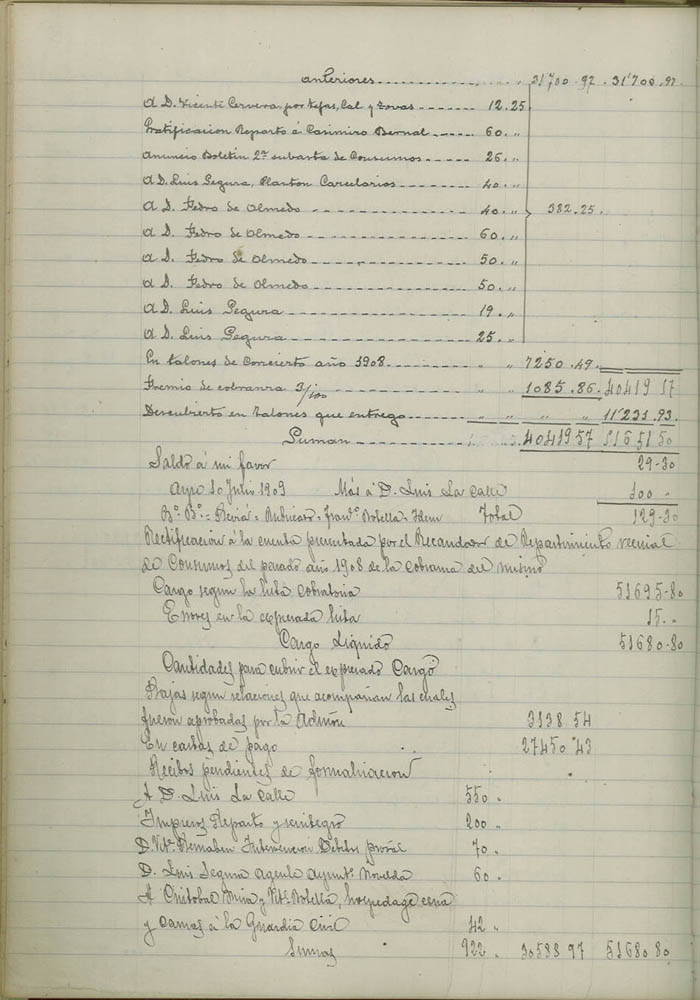 anteriores 31'700.97. 31'700.97
A D. Vicente Cervera, por tejas, Cal y 12.25
Gratificacion Reparto á Casimiro Bernal 60. "
Anuncio Boletin 2ª subasta de Consumos 26. "
A D. Luis Segura, Planton Carcelarios 40. "
A D. Pedro de Olmedo 40. " 382.25.
A D. Pedro de Olmedo 60. "
A D. Pedro de Olmedo 50. "
A D. Pedro de Olmedo 50. "
A D. Luis Segura 19. "
A D. Luis Segura 25. "
En talones de Concierto año 1908. " " 7250.49.
Premio de cobranza 3/100 " " 1085.86. 40419 57
Descubierto en talones que entrego " " " " 11'231.93.
Suman 40419 57 51651 50
Saldo á mi favor 29-30
10 Julio 1909 Más á D. Luis La Calle 100 "
Bº Bº= Total 129-30
Rectificación á la cuenta presentada por el Recaudador de Repartimiento vecinal
de Consumos del pasado año 1908 de la cobranza del mismo
Cargo segun la lista cobratoria 51695-80
Errores en la expresada lista 15. "
Cargo Líquido 51680-80
Cantidades para cubrir el expresado Cargo
Bajas segun relaciones que acompañan las cuales
fueron aprobadas por la Admón 3138 54
En cartas de pago 27450 43
Recibos pendientes de formalización
A D. Luis La Calle 550 "
Impresos Reparto y reintegro 200 "
D. Vte. Bernabeu Intervencion Débitos 70 "
D. Luis Segura agente ayuntº Novelda 60 "
A Cristobal Mira y Vte. Botella, hospedage cena
y camas á la Guardia Civil 42 "
Sumas 922 " 30588 97 51680 80